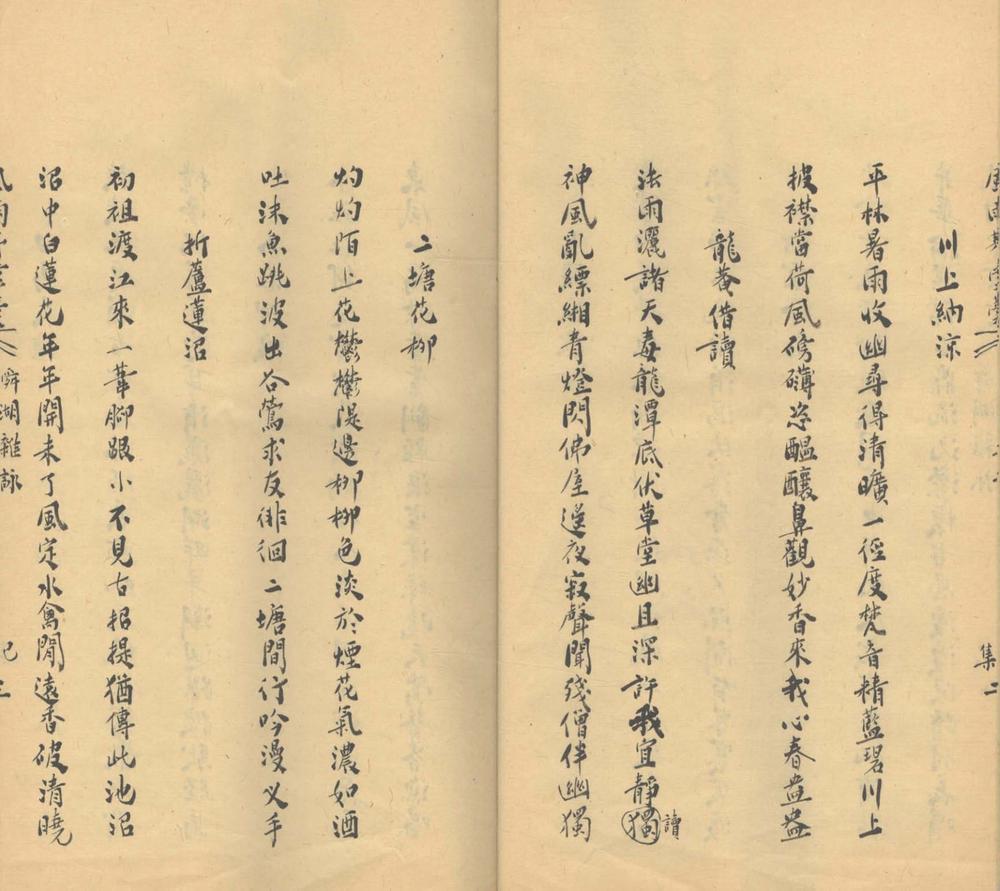 集二
川上納涼
平林暑雨收幽尋得清曠一徑度梵音精藍碧川上
披襟當荷風磅礴恣醞釀鼻觀妙香來我心春盎盎
龍菴借讀
法雨灑諸天毒龍潭底伏草堂幽且深許我宜靜獨讀
神風亂縹緗青燈閃佛屋遙夜寂聲聞殘僧伴幽獨
二塘花柳
灼灼陌上花鬱鬱隄邊柳柳色淡於煙花氣濃如酒
吐沫魚跳波出谷鶯求友徘徊二塘間行吟漫叉手
折蘆蓮沼
初祖渡江來一葦腳跟小不見古招提猶傳此池沼
沼中白蓮花年年開未了風定水禽閒遠香破清曉
湖雜詠